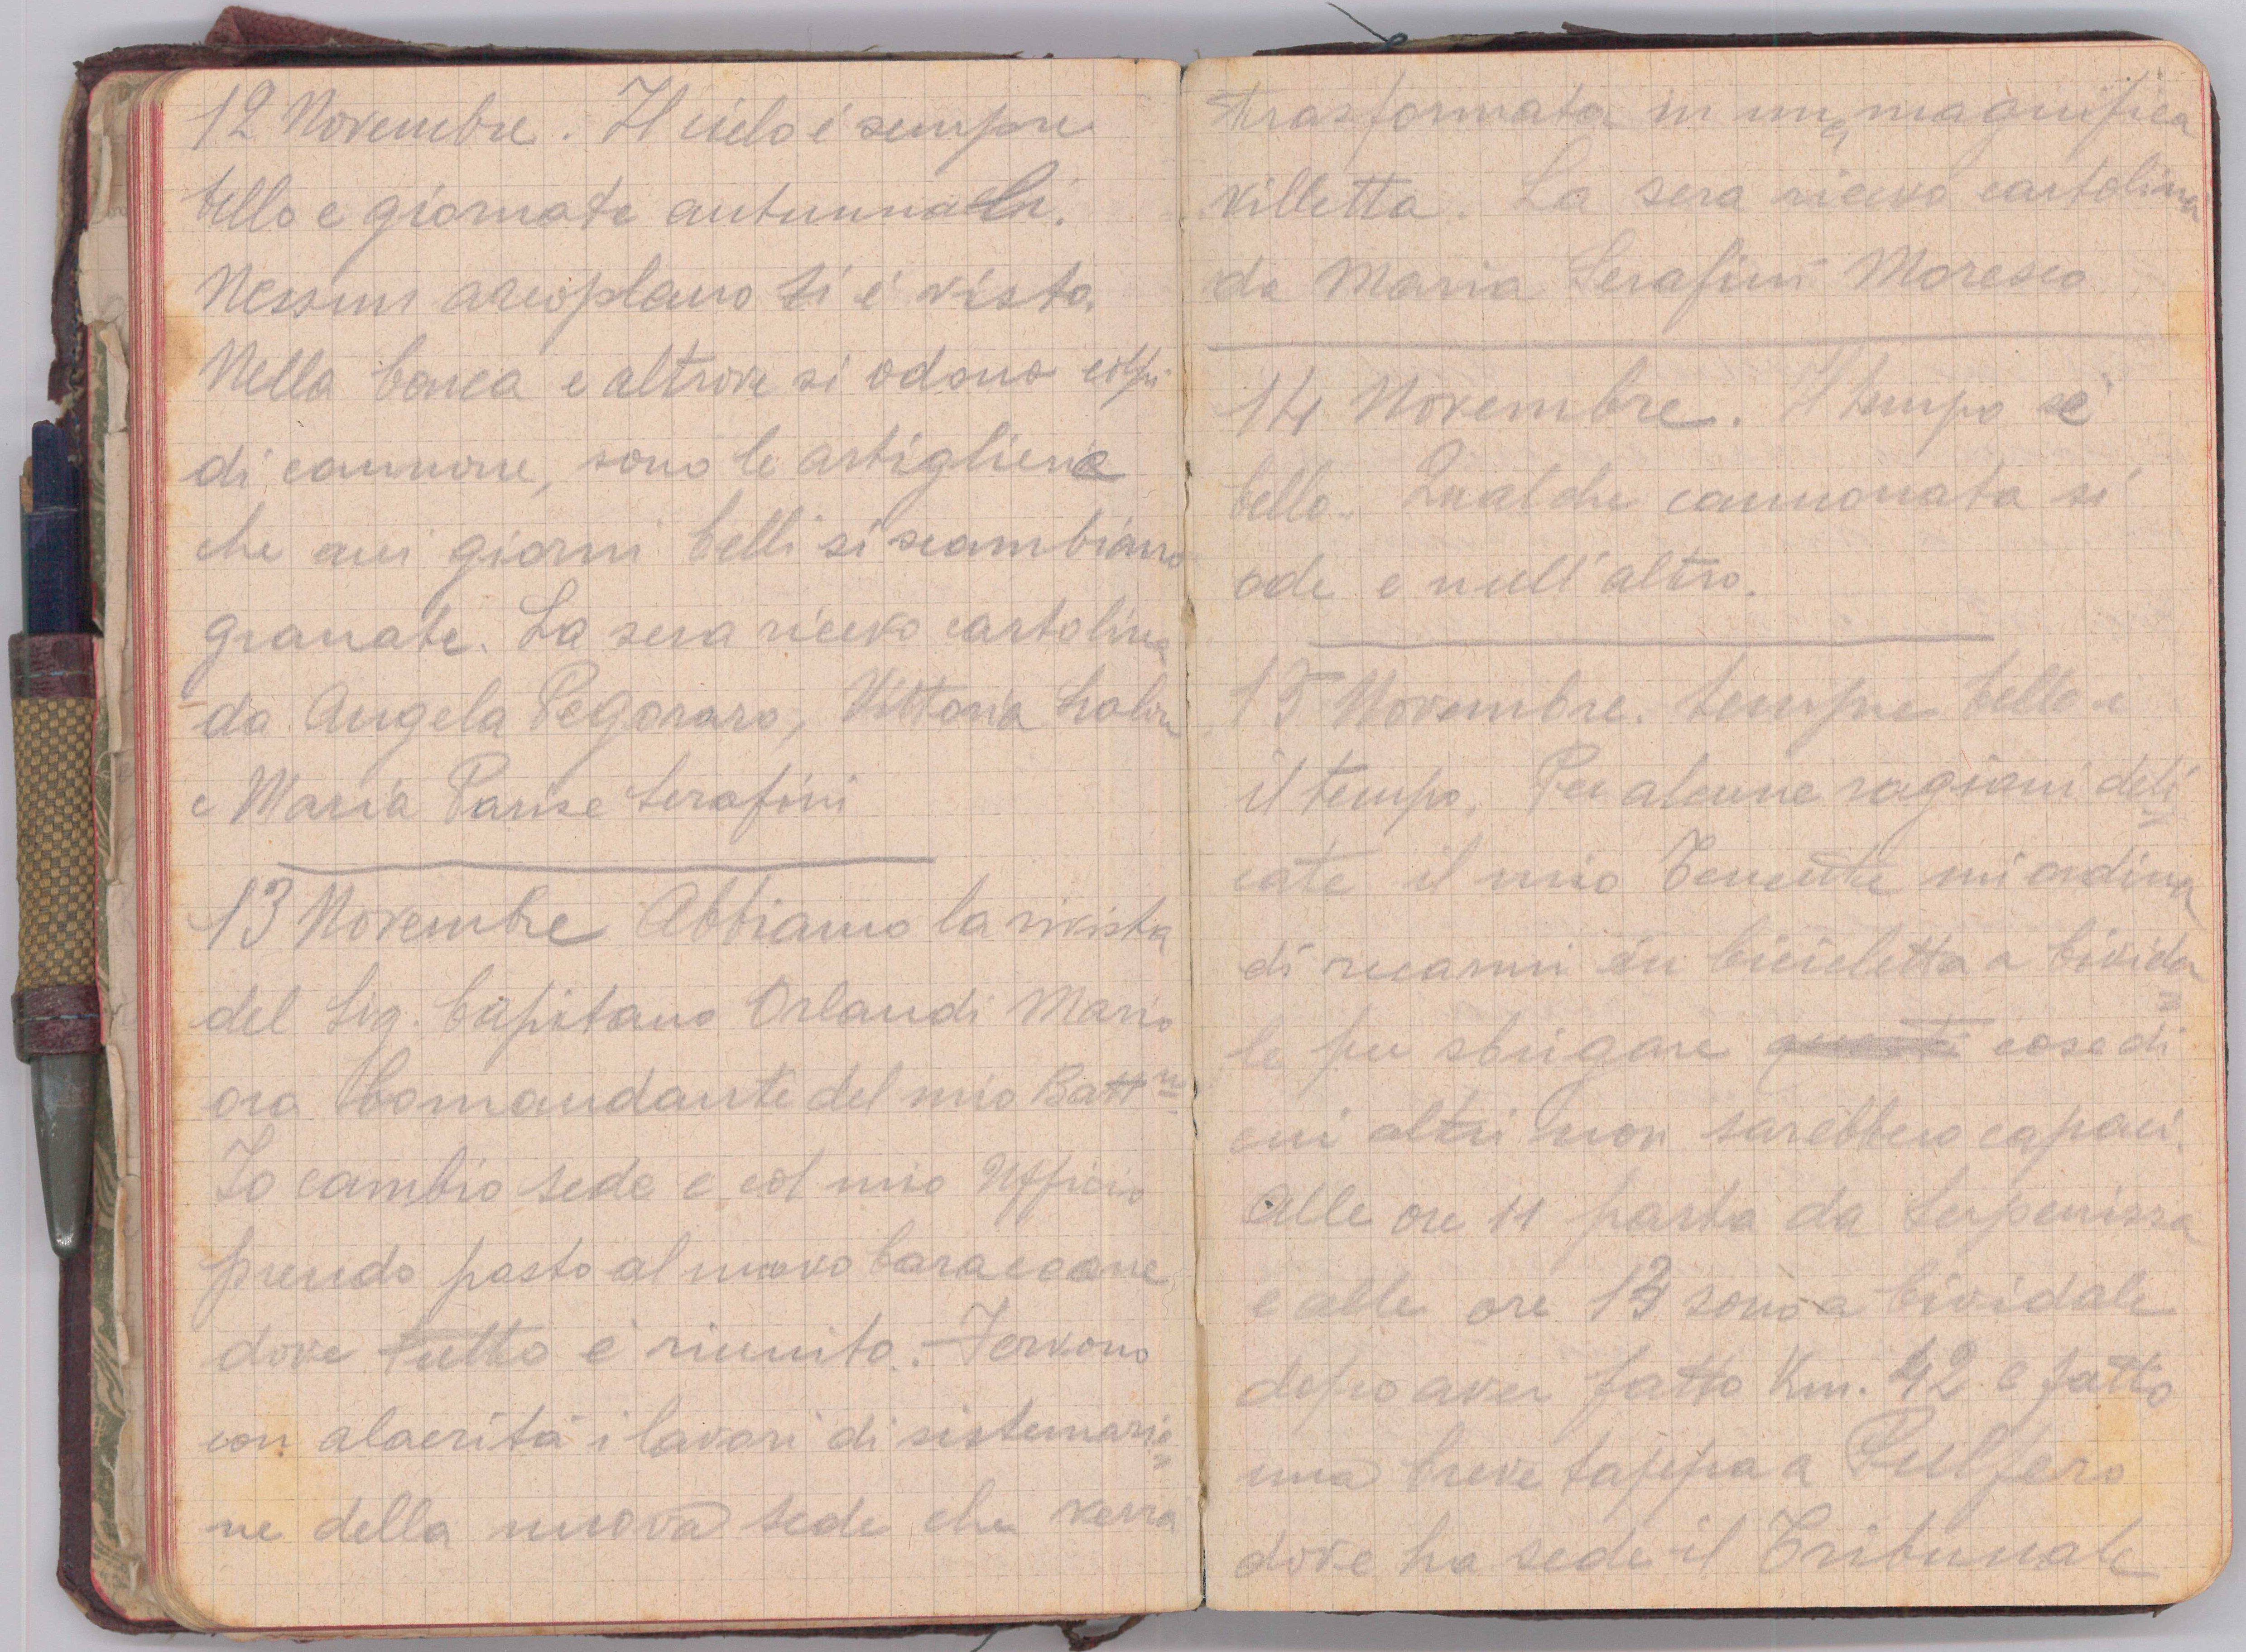 12 Novembre. Il cielo é sempre
bello e giornate autunnali.
Nessun areoplano si é visto.
Nella conca e altrove si odono colpi
di cannone, sono le artiglierie
che nei giorni belli si scambiano
granate. La sera ricevo cartolina
da Angela Pegoraro, Vittoria
e Maria Parise Serafini
13 Novembre Abbiamo la rivista
del Sig. Capitano Orlandi Mario
ora Comandante del mio Battne
Io cambio sede e col mio Ufficio
prendo posto al nuovo baraccone
dove tutto é riunito. Fervono
con alacritá i lavori di sistemazio=
ne della nuova sede che verrá
trasformata in una magnifica
villetta. La sera ricevo cartolina
da Maria Serafini Moresco
14 Novembre. Il tempo é
bello. Qualche cannonata si
ode e null'altro.
15 Novembre. Sempre bello é
il tempo. Per alcune ragioni deli=
cate il mio Tenente mi ordina
di recarmi in bicicletta a Civida=
le per sbrigare cose di
cui altri non sarebbero capaci.
Alle ore 11 parto da Serpenizza
e alle ore 13 sono a Cividale
dopo aver fatto Km. 42 e fatto
una breve tappa a Pulfero
dove ha sede il Tribunale